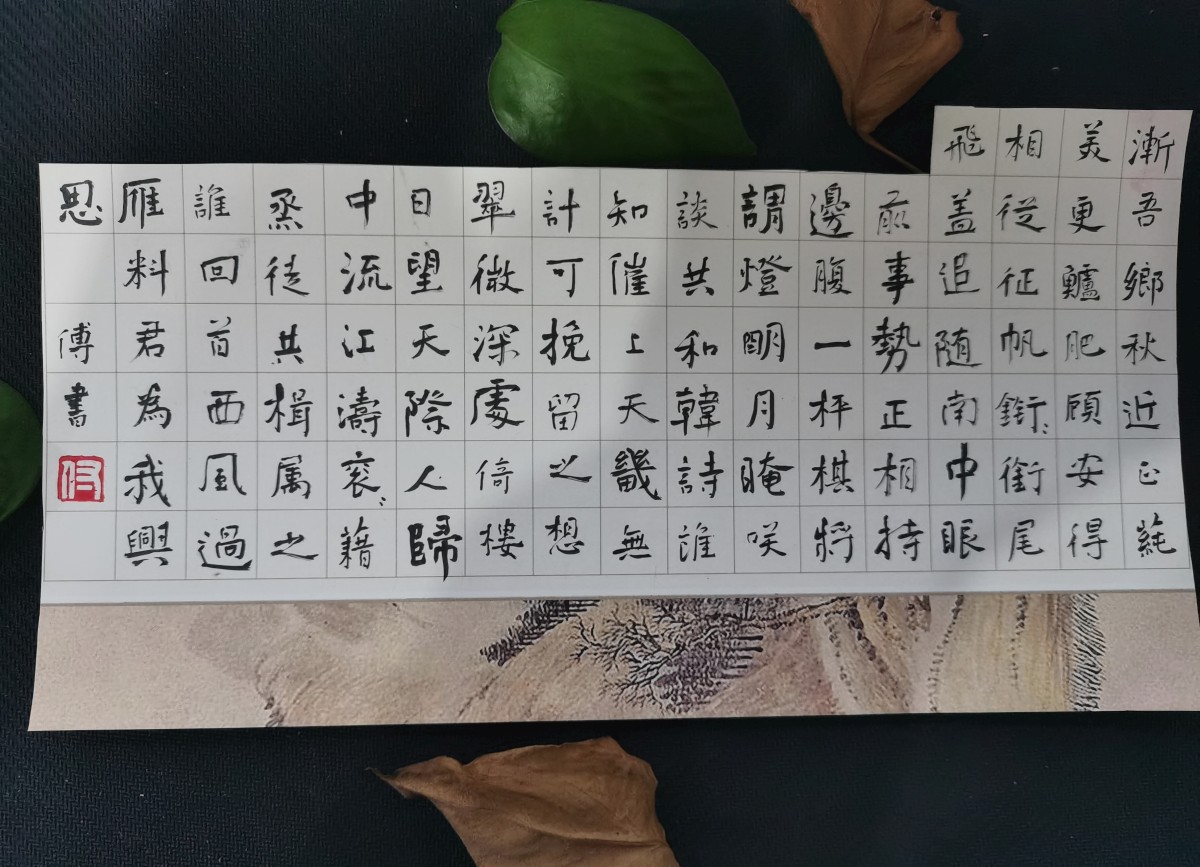 漸吾鄉秋近正蒓
美更鱸肥顧安得
相從征帆銜〻銜尾
飛蓋追随南中眼
前事勢正相持
邊腹一枰棋將
謂燈明月晻咲
談共和韓詩誰
知催上天畿無
計可挽留之想
翠微深處倚樓
日望天際人歸
中流江濤衮〻藉
蒸徒共楫属之
誰回首西風過
雁料君為我興
思 傅書